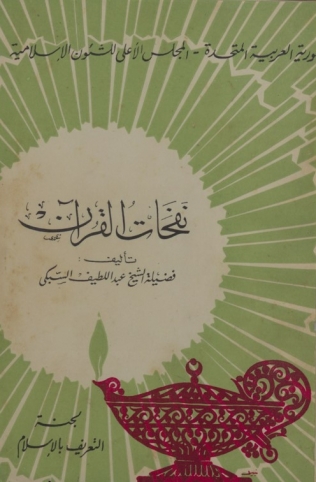 ورية العربية المتحدة - المجلس الأعلى للشئون الإسلامية
نفحات القرآن
تأليف:
فضيلة الشيخ عبداللطيف السبكى
لجنة
التعريف بالإسلام